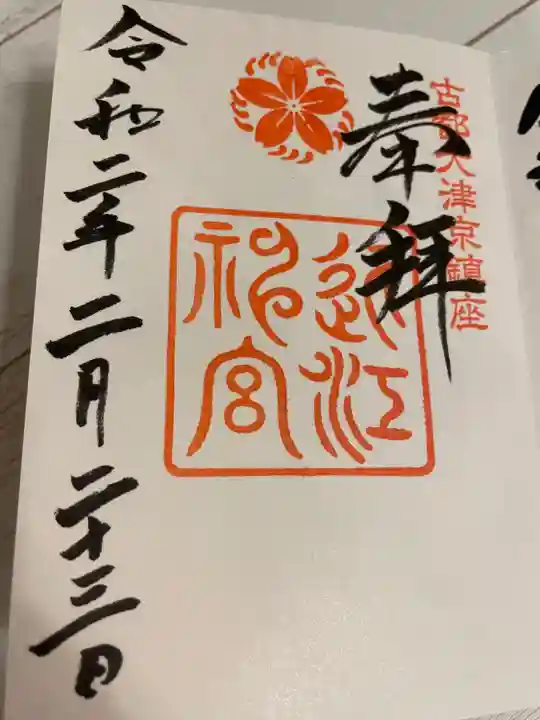 古都大津京鎮座
奉拝
近江
神宮
令和二年二月二十三日